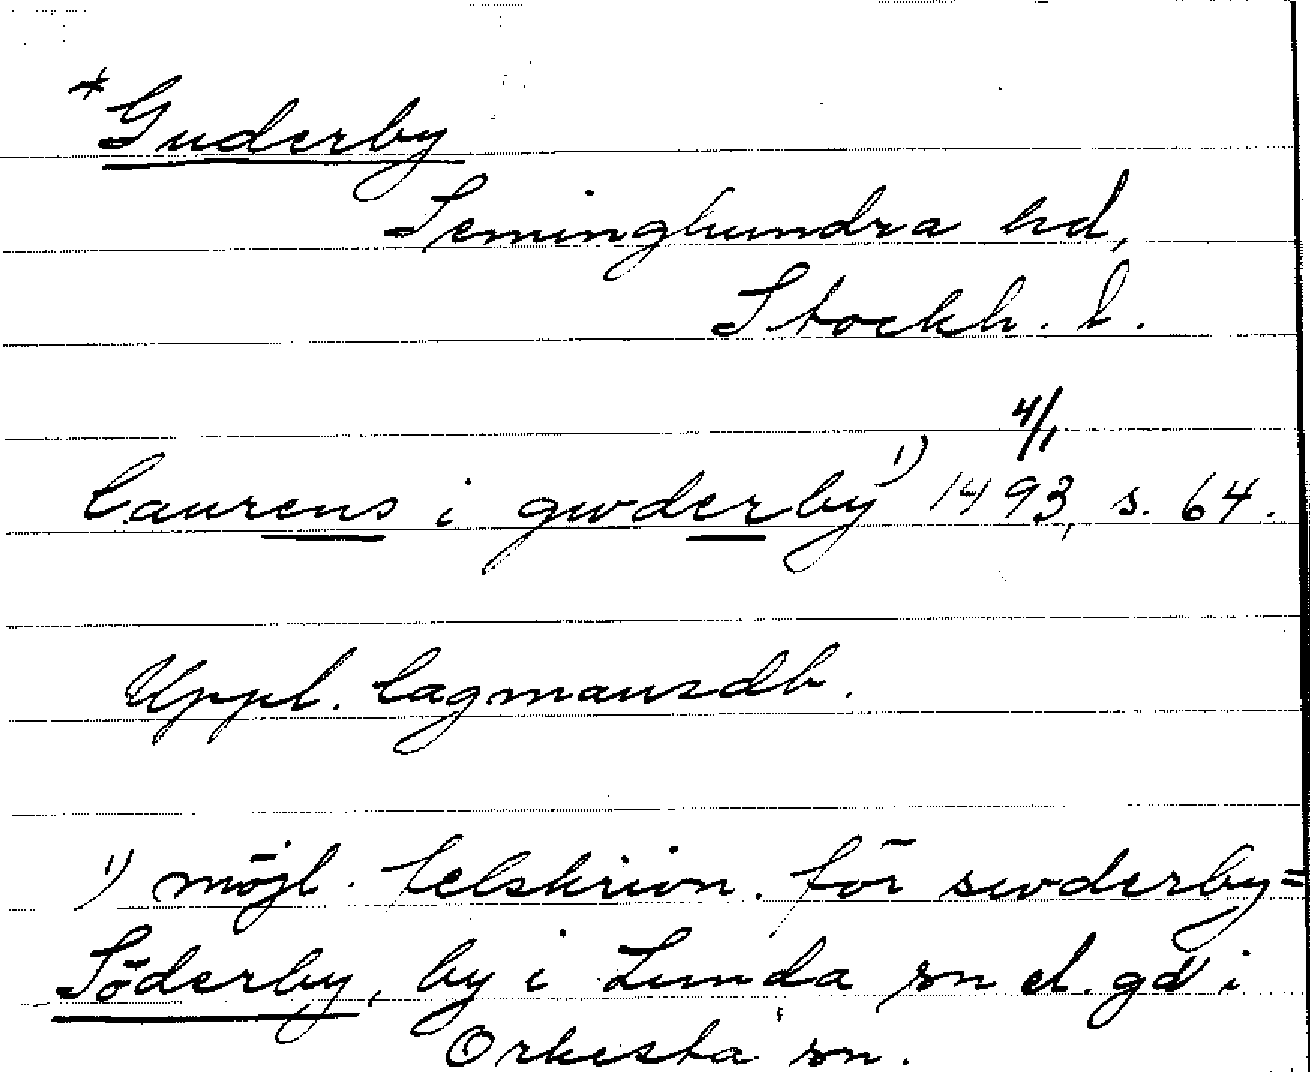 *Guderby
Seminghundra hd,
Stockh. l.
4/1
Laurens i gwderby 1) 1493, s. 64.
Uppl. Lagmansdb.
1) möjl. felskrivn. för swderby=
Söderby, by i Lunda sn el. gd i
Orkesta sn.